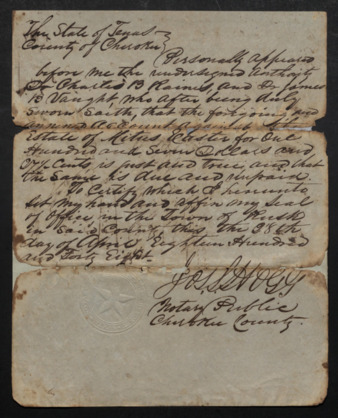 The State of Texas
County of Cherokee
Personally appeared
before me the undersigned authority
Dr Charles B Raines, and Dr James
B Vaught, who after being duly
Sworn Saith, that the foregoing and
annexed account against the
estate of for One
Hundred and Seven Dollars and
37½ Cents, is just and true, and that
the Same is due and unpaid.
To Certify which I hereunto
Set my hand and affix my seal
of office in the Town of Rusk
in Said County this, the 28th
day of April Eighteen Hundred
and Forty Eight.
Jos L Hogg
Notary Public
Cherokee County.